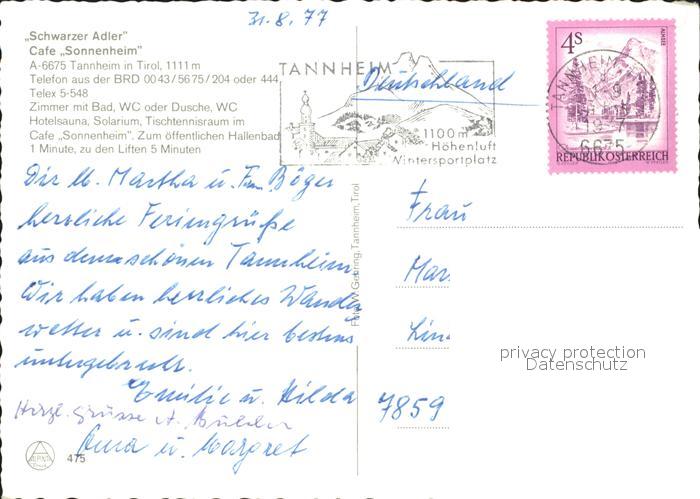 31.8.77
„Schwarzer Adler"
Cafe „Sonnenheim"
A-6675 Tannheim in Tirol, 1111 m
Telefon aus der BRD 0043/5675/204 oder 444
Telex 5-548
Zimmer mit Bad, WC oder Dusche, WC
Hotelsauna, Solarium, Tischtennisraum im
Cafe „Sonnenheim". Zum öffentlichen Hallenbad
1 Minute, zu den Liften 5 Minuten
TANNHEIM
1100m
Höhenluft
Wintersportplatz
Deutschland
4S
ALMSEE
REPUBLIK ÖSTERREICH
TANNHEIM
6675
Dir lb. Martha u. Fam. Böger
herzliche Feriengrüße
aus dem schönen Tannheim
Wir haben herrliches Wander
wetter u. sind hier bestens
untergebracht.
Emilie u. Hilda
Herzl. Grüsse
Anna u. Margret
Frau
Mar
Lin
7859
Tannheim, Tirol
475
privacy protection
Datenschutz